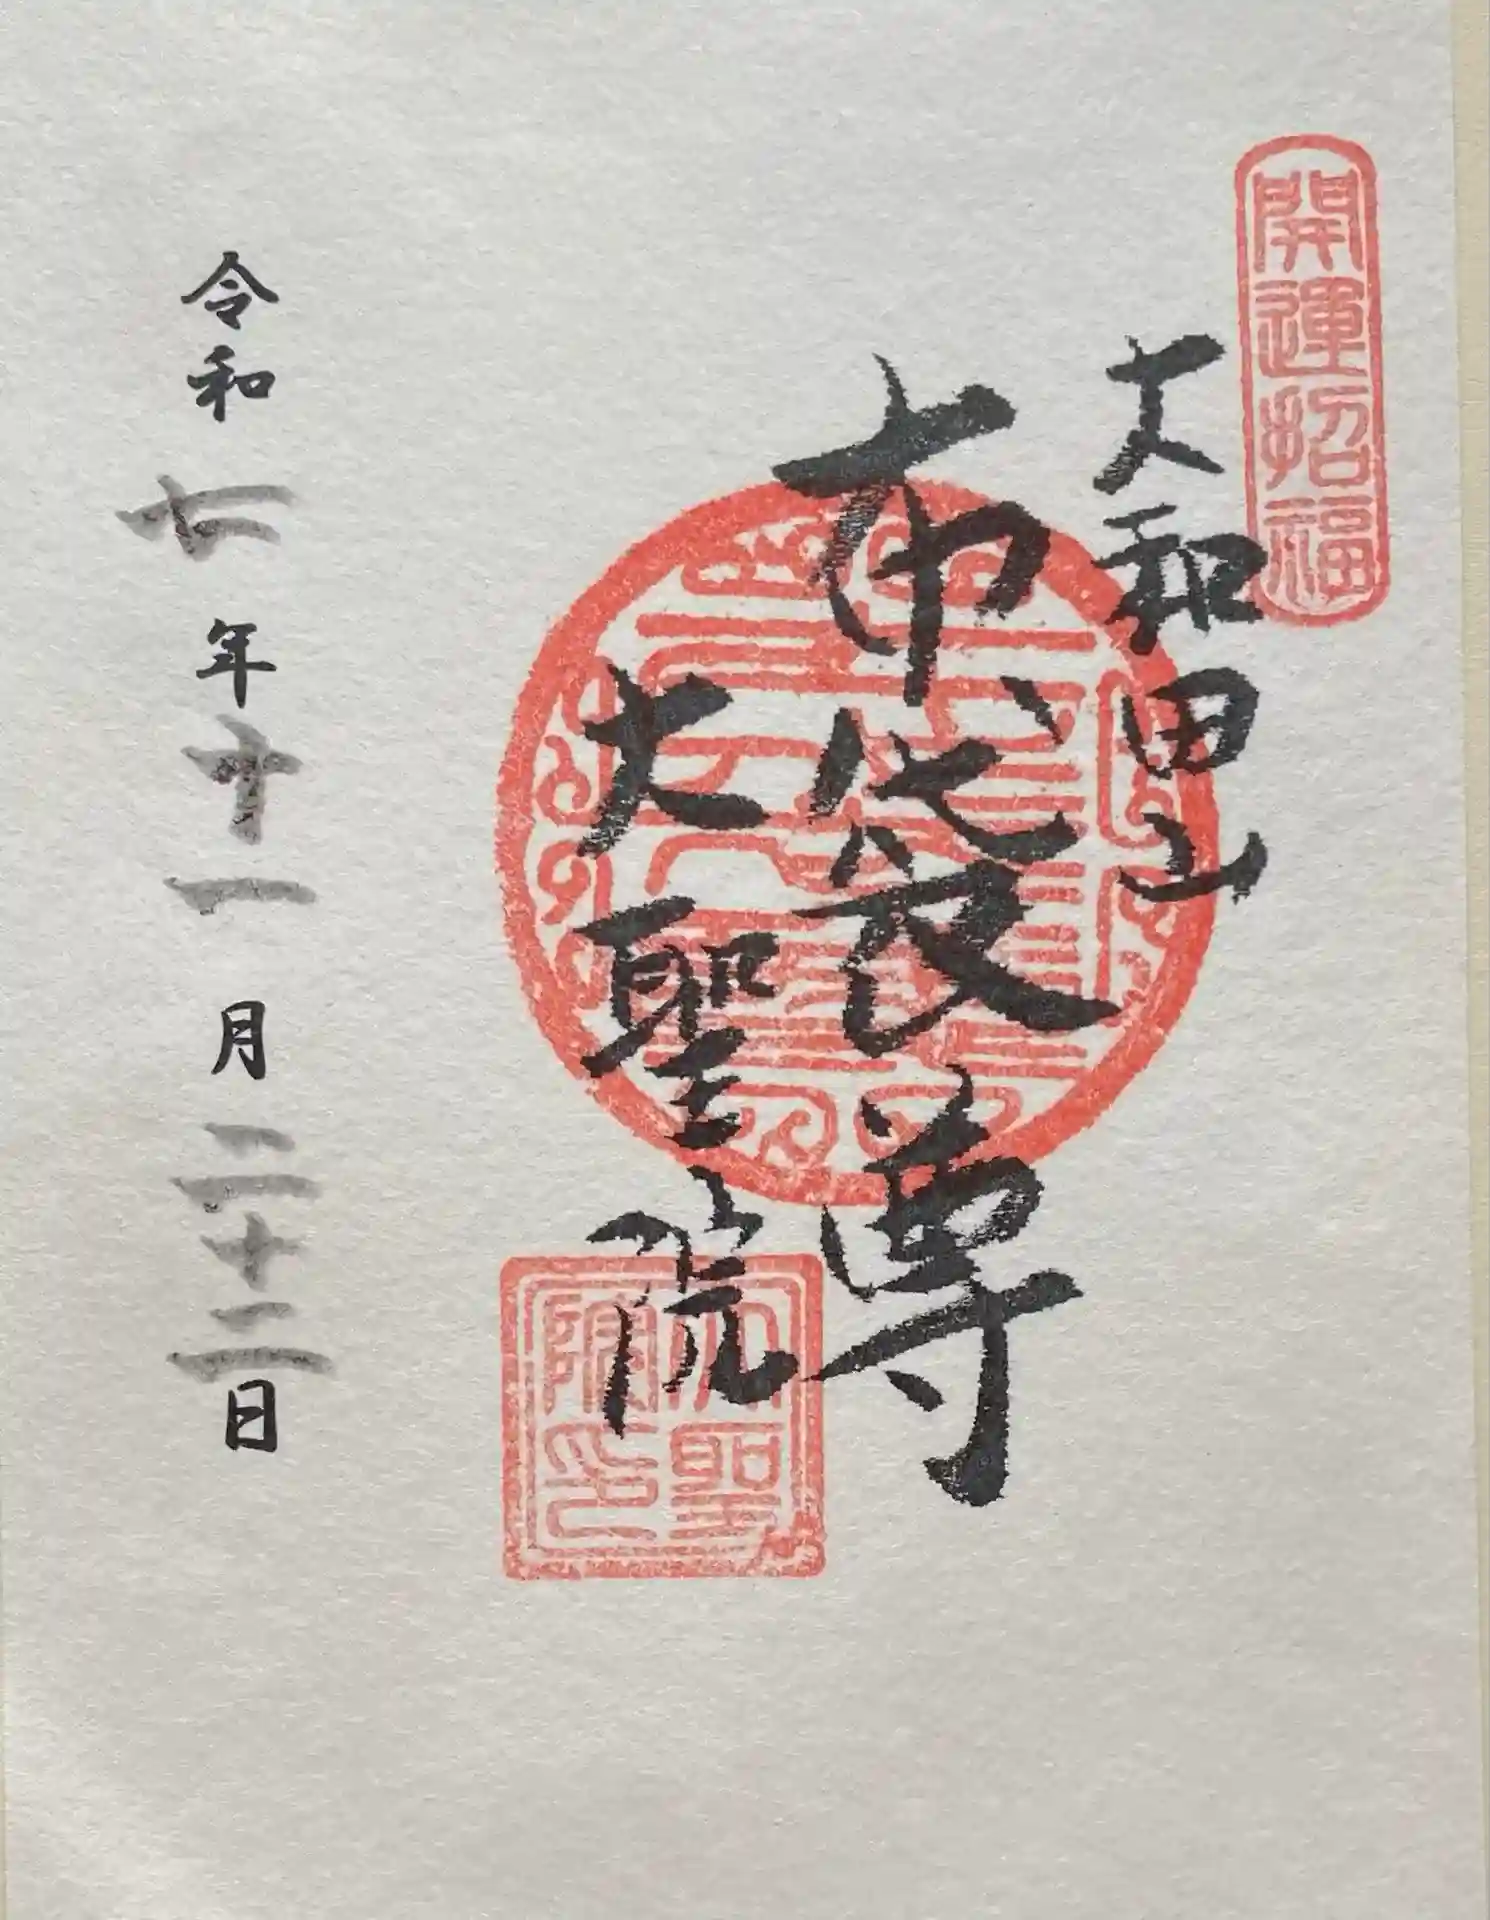 開運招福
大和田山
布袋尊
大聖院
大聖
院印
令和七年十一月二十二日